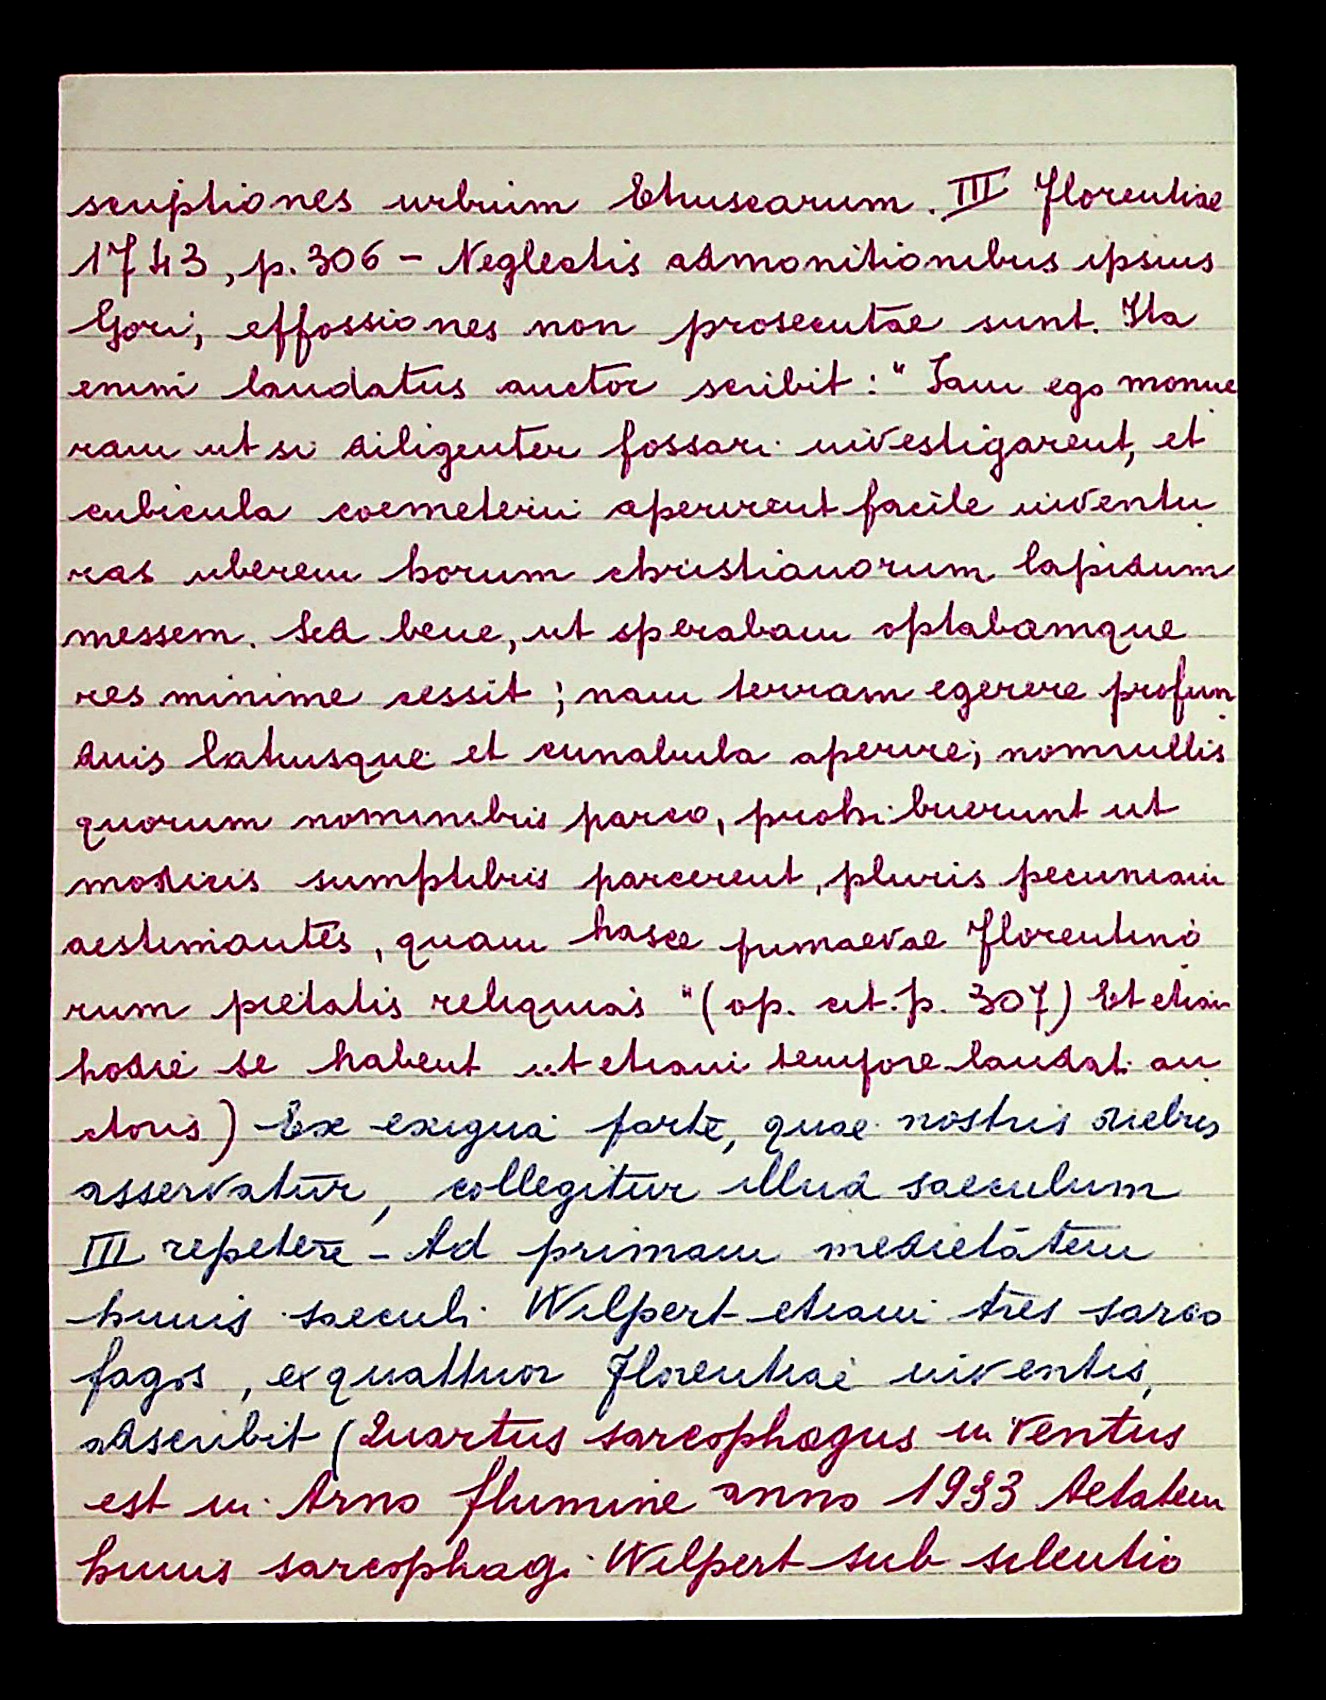 scriptiones urbium Etruscarum. III Florentiae
1743, p. 306 – Neglectis admonitionibus ipsius
Gori, effossiones non prosecutae sunt. Ita
enim laudatus auctor scribit: "Iam ego monue
ram ut si diligenter fossari investigarent, et
cubicula coemeterii aperirent facile inventu
ras uberem horum christianorum lapidum
messem. Sed bene, ut sperabam optabamque
res minime cessit; nam terram egerere profun
duis latiusque et cunabula aperire; nonnullis
quorum nominibus parco, prohibuerunt ut
modicis sumptibus parcerent, pluris pecuniam
aestimantes, quam hasce primaevae Florentino
rum pietatis reliquias" (op. cit. p. 307) Et etiam
hodie se habent ut etiam tempore laudat. au
ctoris) Ex exigua parte, quae nostris diebus
asservatur, collegitur illud saeculum
III repetere – Ad primam medietatem
huius saeculi Wilpert etiam tres sarco
fagos, ex quattuor Florentiae inventis,
adscribit (Quartus sarcophagus inventus
est in Arno flumine anno 1933 Aetatem
huius sarcophagi Wilpert sub silentio